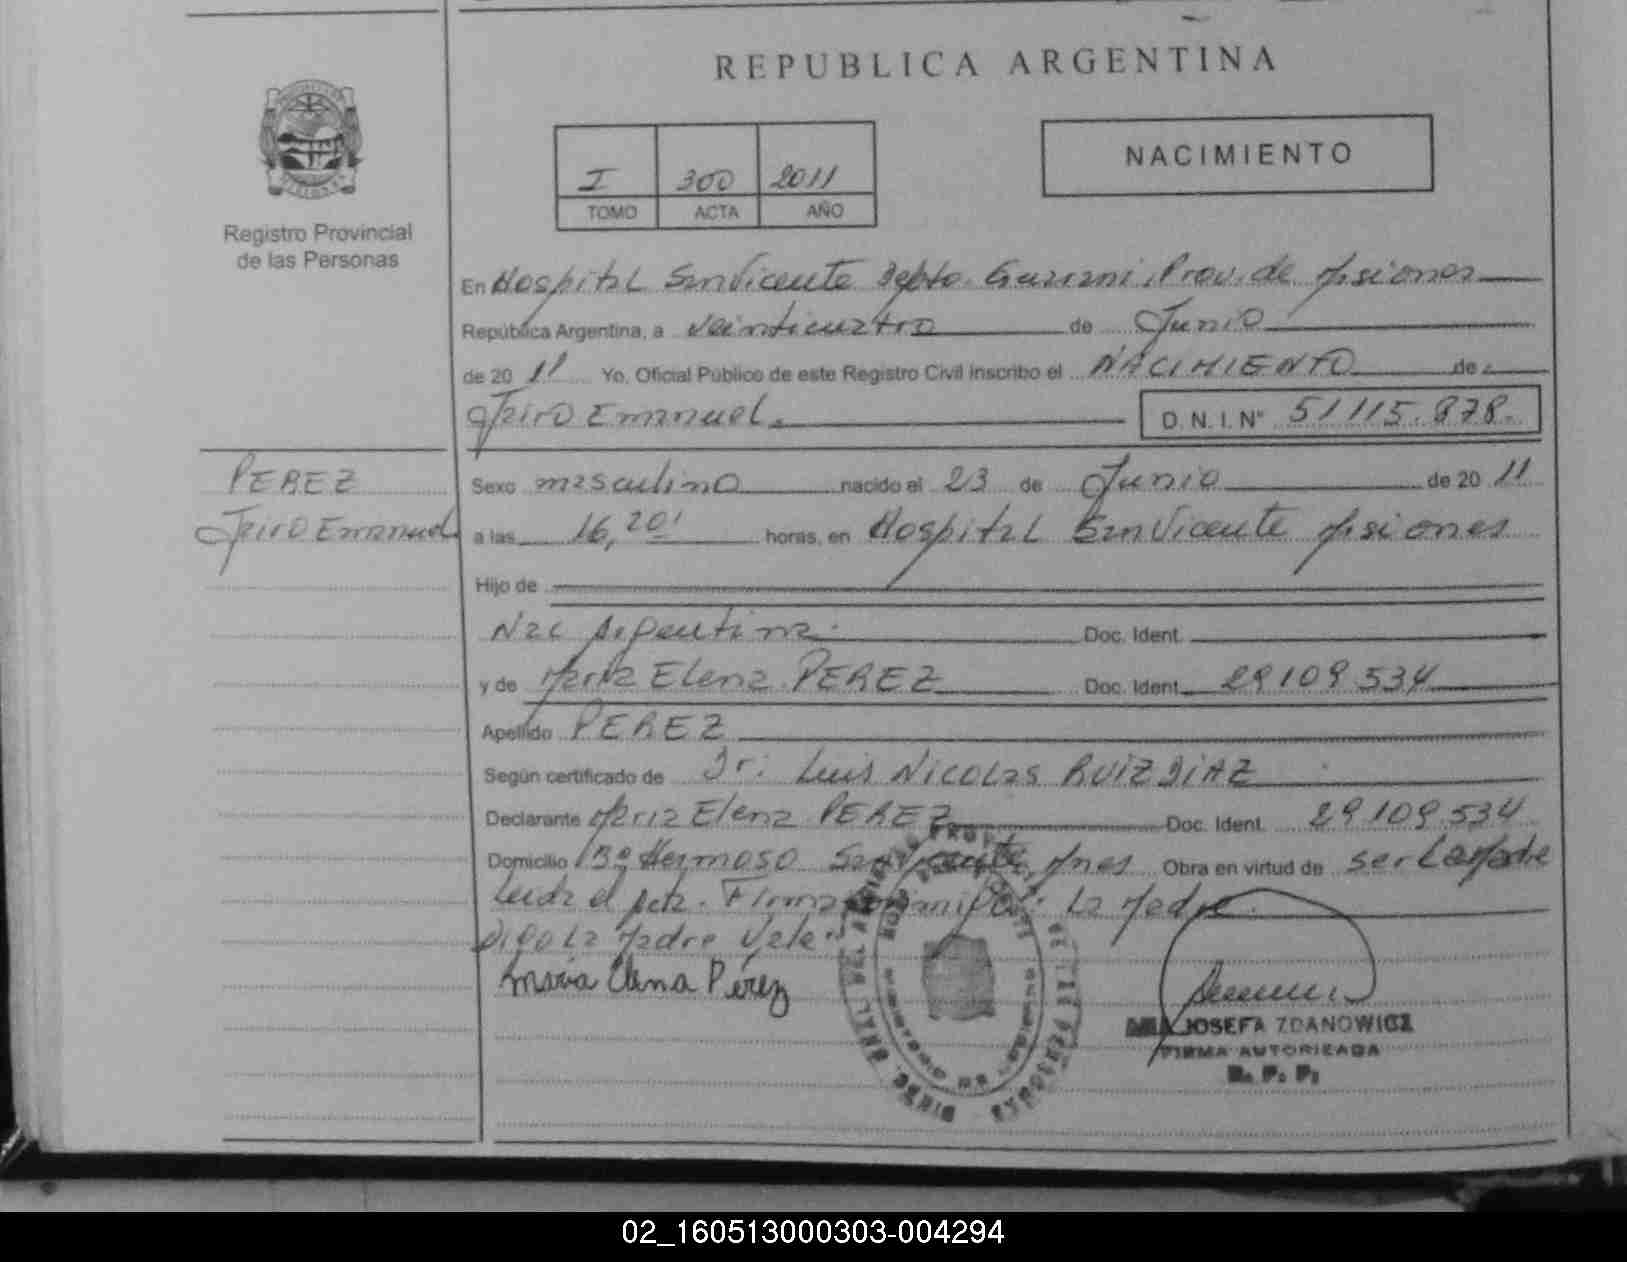 REPUBLICA ARGENTINA
NACIMIENTO
I 300 2011
TOMO ACTA AÑO
Registro Provincial
de las Personas
En Hospital San Vicente Depto. Guarani, Prov. de Misiones
República Argentina, a veinticuatro de Junio
de 2011 Yo, Oficial Público de este Registro Civil inscribo el NACIMIENTO de
Jairo Emanuel. D. N. I. N° 51115.878.
PEREZ
Jairo Emanuel
Sexo masculino nacido el 23 de Junio de 2011
a las 16,20' horas, en Hospital San Vicente Misiones
Hijo de
Nac Argentina. Doc. Ident.
y de Maria Elena PEREZ Doc. Ident. 29109534
Apellido PEREZ
Según certificado de Dr. Luis Nicolas RUIZ DIAZ
Declarante Maria Elena PEREZ Doc. Ident. 29109534
Domicilio Bº Hermoso San Vicente Mnes Obra en virtud de ser La Madre
Leida el Acta. Firma La Madre.
Digo La Madre Vale.
Maria Elena Pérez
JOSEFA ZDANOWICZ
FIRMA AUTORIZADA
R. P. P.
02_160513000303-004294